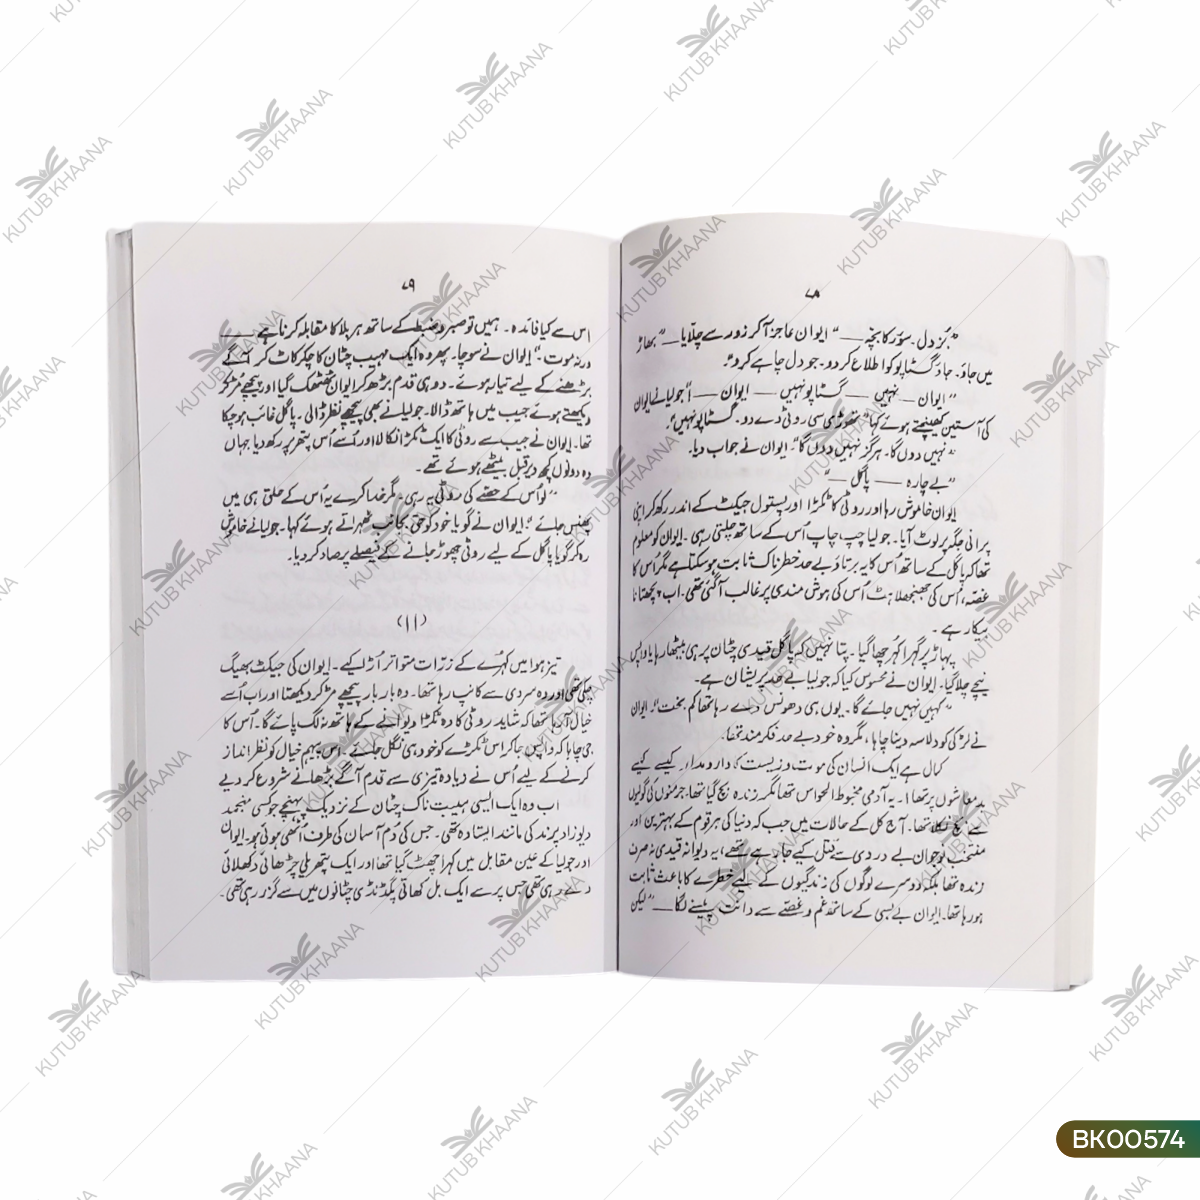 ۷۸
"بُزدل۔ سؤر کا بچہ ــــ" ایوان عاجز آکر زور سے چلّایا ــــ "بھاڑ
میں جاؤ۔ جاؤ گسٹاپو کو اطلاع کر دو۔ جو دل چاہے کرو"۔
"ایوان ــــ نہیں ــــ گسٹاپو نہیں ــــ ایوان ــــ!" جولیا نے ایوان
کی آستین کھینچتے ہوئے کہا "تھوڑی سی روٹی دے دو۔ گسٹاپو نہیں"۔
"نہیں دوں گا۔ ہرگز نہیں دوں گا"۔ ایوان نے جواب دیا۔
"بے چارہ ــــ پاگل ــــ"
ایوان خاموش رہا اور روٹی کا ٹکڑا اور پستول جیکٹ کے اندر رکھ کر اپنی
پرانی جگہ پر لوٹ آیا۔ جولیا چپ، چاپ اُس کے ساتھ چلتی رہی۔ ایوان کو معلوم
تھا کہ پاگل کے ساتھ اُس کا یہ برتاؤ بے حد خطرناک ثابت ہو سکتا ہے مگر اُس کا
غصّہ، اُس کی جھنجھلاہٹ اُس کی ہوش مندی پر غالب آگئی تھی۔ اب پچھتانا
بیکار ہے۔
پہاڑ پر گہرا کہر چھا گیا۔ پتا نہیں کہ پاگل قیدی چٹان پر ہی بیٹھا رہا یا واپس
نیچے چلا گیا۔ ایوان نے محسوس کیا کہ جولیا بے حد پریشان ہے۔
"کہیں نہیں جائے گا۔ یوں ہی دھونس دے رہا تھا کم بخت"! ایوان
نے لڑکی کو دلاسہ دینا چاہا، مگر وہ خود بے حد فکرمند تھا۔
کمال ہے ایک انسان کی موت و زیست کا دار و مدار کیسے کیسے
بدمعاشوں پر تھا!۔ یہ آدمی مخبوط الحواس تھا مگر زندہ بچ گیا تھا، جرمنوں کی گولیوں
سے بچ نکلا تھا۔ آج کل کے حالات میں جب کہ دنیا کی ہر قوم کے بہترین اور
منتخب نوجوان بے دردی سے قتل کیے جا رہے تھے، یہ دیوانہ قیدی نہ صرف
زندہ تھا بلکہ دوسرے لوگوں کی زندگیوں کے لیے خطرے کا باعث ثابت
ہو رہا تھا۔ ایوان بے بسی کے ساتھ غم و غصّے سے دانت پیسنے لگا ــــ "لیکن
۷۹
اس سے کیا فائدہ۔ ہمیں تو صبر و ضبط کے ساتھ ہر بلا کا مقابلہ کرنا ہے ــــ
ورنہ موت"۔ ایوان نے سوچا۔ پھر وہ ایک مہیب چٹان کا چکر کاٹ کر آگے
بڑھنے کے لیے تیار ہوئے۔ دو ہی قدم بڑھ کر ایوان ٹھٹھک گیا اور پیچھے مڑ کر
دیکھتے ہوئے جیب میں ہاتھ ڈالا۔ جولیا نے بھی پیچھے نظر ڈالی۔ پاگل غائب ہو چکا
تھا۔ ایوان نے جیب سے روٹی کا ایک ٹکڑا نکالا اور اُسے اُس پتھر پر رکھ دیا جہاں
وہ دونوں کچھ دیر قبل بیٹھے ہوئے تھے۔
"لو اُس کے حصّے کی روٹی یہ رہی۔ مگر خدا کرے یہ اُس کے حلق ہی میں
پھنس جائے"۔ ایوان نے گویا خود کو حق بجانب ٹھہراتے ہوئے کہا۔ جولیا نے خاموش
رہ کر گویا پاگل کے لیے روٹی چھوڑ جانے کے فیصلے پر صاد کر دیا۔
(۱۱)
تیز ہوا میں کہرے کے ذرات متواتر اُڑا کیے۔ ایوان کی جیکٹ بھیگ
چکی تھی اور وہ سردی سے کانپ رہا تھا۔ وہ بار بار پیچھے مڑ کر دیکھتا اور اب اُسے
خیال آ رہا تھا کہ شاید روٹی کا وہ ٹکڑا دیوانے کے ہاتھ نہ لگ پائے گا۔ اُس کا
جی چاہا کہ واپس جا کر اس ٹکڑے کو خود ہی نگل جائے۔ اس پیہم خیال کو نظر انداز
کرنے کے لیے اُس نے زیادہ تیزی سے قدم آگے بڑھانے شروع کر دیے
اب وہ ایک ایسی ہیبت ناک چٹان کے نزدیک پہنچے جو کسی منجمد
دیوزاد پرند کی مانند ایستادہ تھی۔ جس کی دُم آسمان کی طرف اُٹھی ہوئی ہو۔ ایوان
اور جولیا کے عین مقابل میں کہرا چھٹ گیا تھا اور ایک پتھریلی چڑھائی دکھلائی
دے رہی تھی جس پر سے ایک بل کھاتی پگڈنڈی چٹانوں میں سے گزر رہی تھی۔
KUTUB KHAANA
BK00574